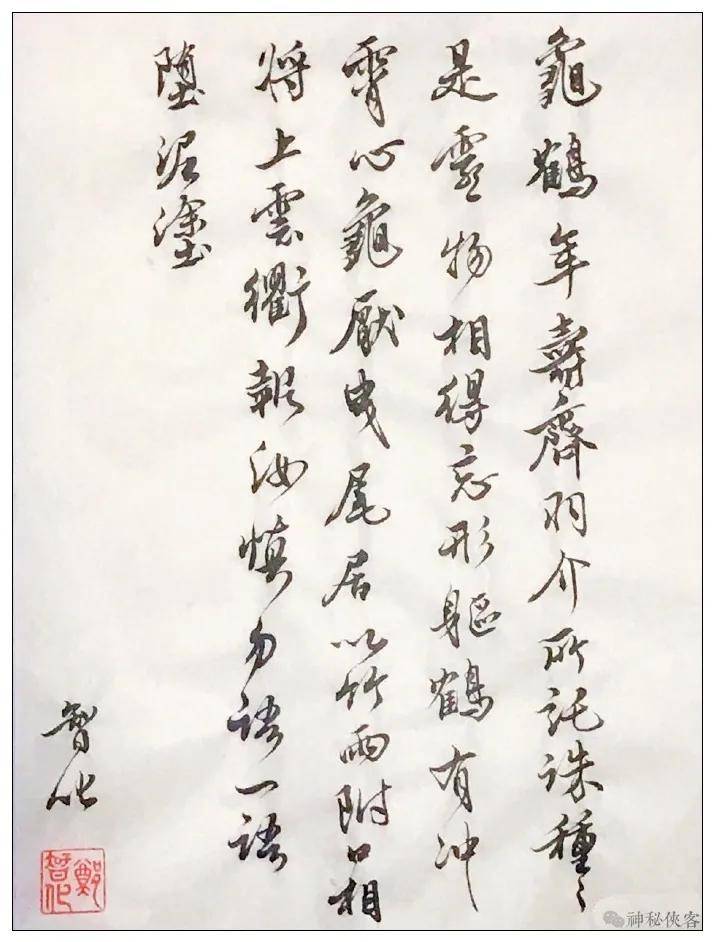 龜鶴年壽齊羽介所託誅種〻
是靈物相得忘形軀鶴有冲
霄心龜厭曳尾居以竹兩附口相
将上雲衢報汝慎勿語一語
墮泥塗
智化
鄭智化
神秘俠客